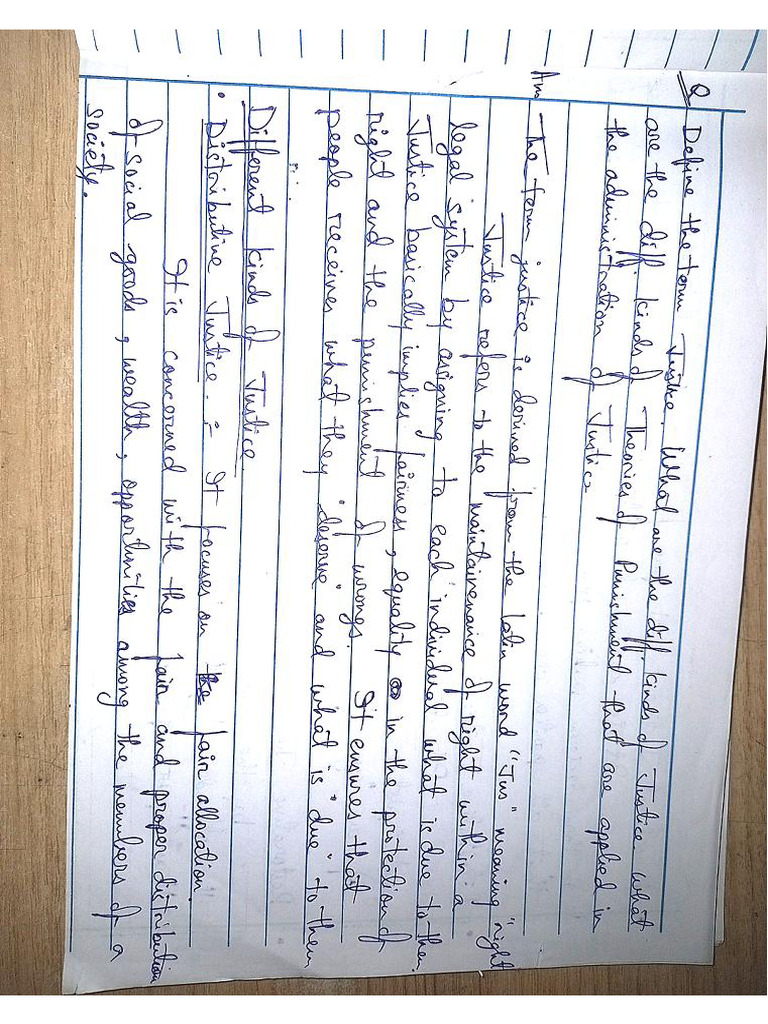 Q Define the term Justice. What are the diff. kinds of Justice what
are the diff kinds of Theories of Punishment that are applied in
the administration of Justice
Ans The term justice is derived from the latin word "Jus" meaning "right
Justice refers to the maintainenance of right within a
legal system by assigning to each individual what is due to them.
Justice basically implies fairness, equality in the protection of
right and the punishment of wrongs. It ensures that
people receives what they "deserve" and what is "due" to them
Different kinds of Justice
• Distributive Justice :- It focuses on the fair allocation.
It is concerned with the fair and proper distribution
of social goods, wealth, opportunities among the members of a
society.